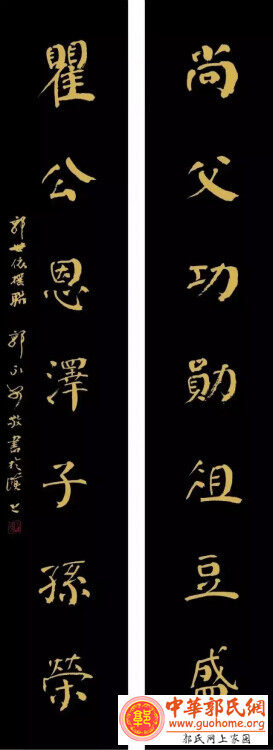 尚父功勋俎豆盛
瞿公恩澤子孫榮
郭世依撰聯
敬書於漢上
中華郭氏网
www.guohome.org
郭氏网上家园